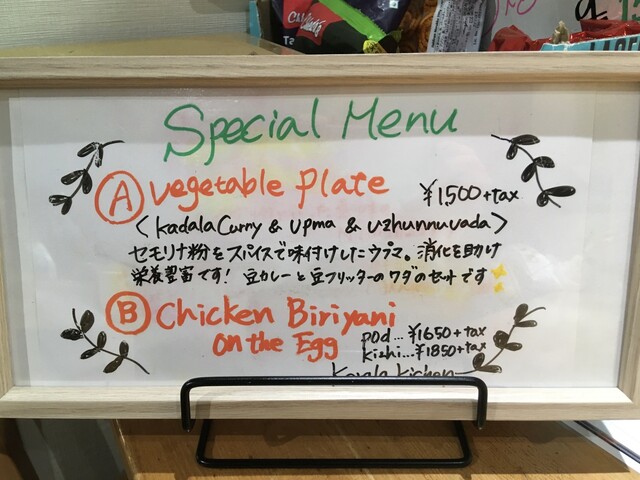 Special Menu
Ⓐ vegetable Plate ¥1,500+tax
<kadala Curry & Upma & uzhunnuvada>
セモリナ粉をスパイスで味付けしたウプマ。消化を助け
栄養豊富です! 豆カレーと豆フリッターのワダのセットです
Ⓑ Chicken Biriyani
on the Egg
pod...¥1650+tax
kizhi...¥1850+tax
Kerala kichen